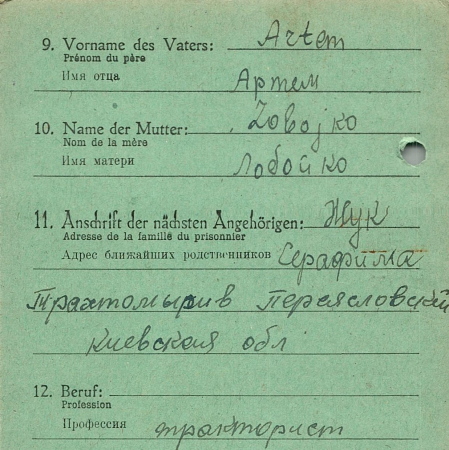 9. Vorname des Vaters: Artem
Prénom du père
Имя отца Артем
10. Name der Mutter: Lobojko
Nom de la mère
Имя матери Лобойко
11. Anschrift der nächsten Angehörigen: Жук
Adresse de la famille du prisonnier
Адрес ближайших родственников Серафима
Трахтомырив Переясловский
Киевская обл
12. Beruf:
Profession
Профессия тракторист